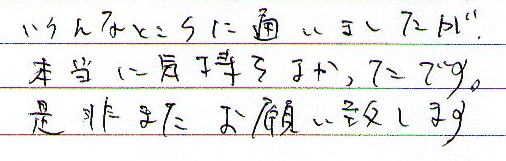 いろんなところに通いましたが、
本当に気持ちよかったです。
是非またお願い致します